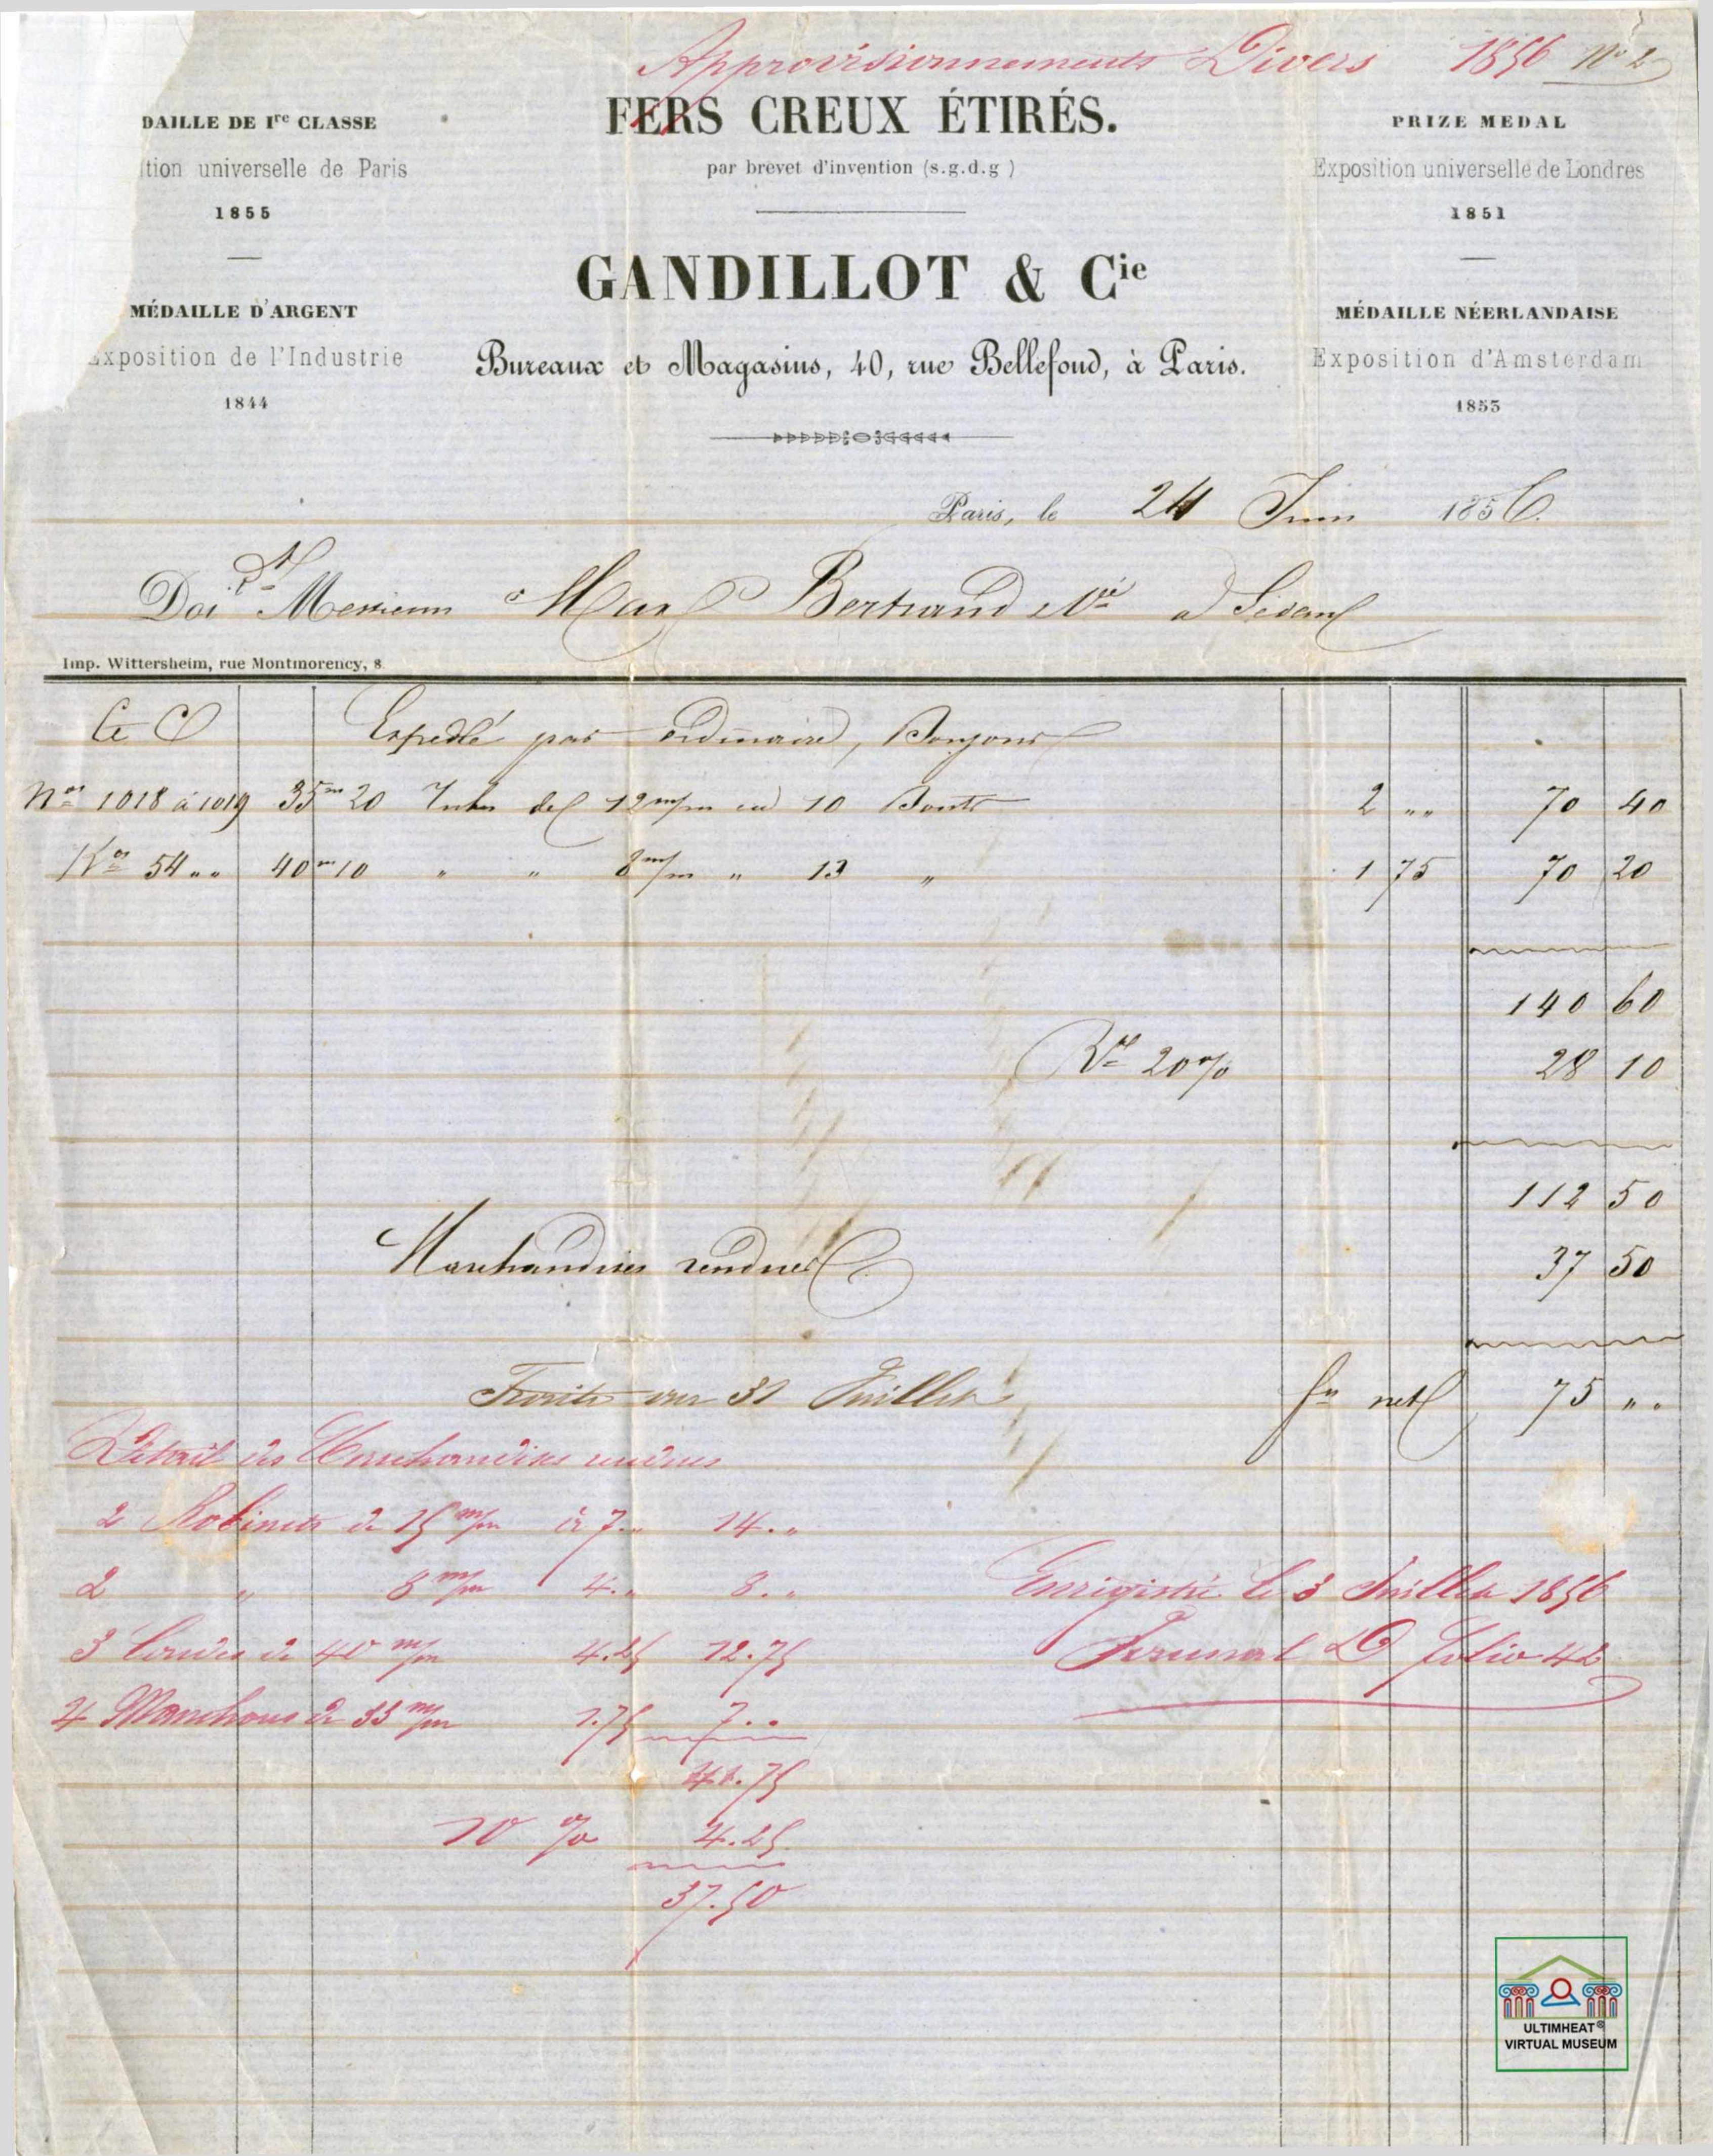 Approvisionnements Divers 1856 No 2
DAILLE DE Ire CLASSE
ition universelle de Paris
1855
MÉDAILLE D'ARGENT
Exposition de l'Industrie
1844
FERS CREUX ÉTIRÉS.
par brevet d'invention (s.g.d.g )
GANDILLOT & Cie
Bureaux et Magasins, 40, rue Bellefond, à Paris.
PRIZE MEDAL
Exposition universelle de Londres
1851
MÉDAILLE NÉERLANDAISE
Exposition d'Amsterdam
1853
Paris, le 24 Juin 1856.
Doi Messieurs Bertrand à Sedan
Imp. Wittersheim, rue Montmorency, 8
Expédié par ordinaire,
Nos 1018 à 1019 35m 20 Tubes de 12 m/m en 10 Bouts 2 " " 70 40
Kos 54 " " 40m 10 " " 8 m/m " 13 " 1 75 70 20
140 60
Rse 20 % 28 10
112 50
Marchandises rendues 37 50
Traite au 31 Juillet fs net 75 " "
Détail des Marchandises rendues
2 Robinets de 15 m/m à 7 . " 14 . "
2 " 8 m/m 4 . " 8 . "
3 Coudes de 40 m/m 4.25 12.75
4 Manchons de 33 m/m 1.75 7 . .
41.75
10 % 4.25
37.50
Enregistré le 3 Juillet 1856
Journal D folio 42
ULTIMHEAT®
VIRTUAL MUSEUM